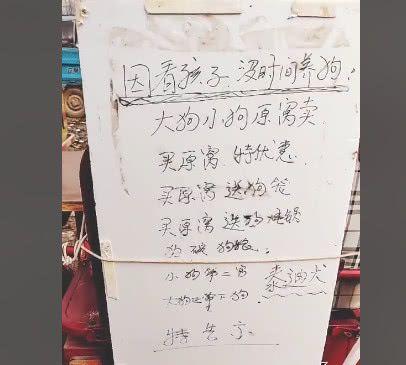 因看孩子没时间养狗:
大狗小狗原窝卖
买原窝 特优惠
买原窝 送狗笼
买原窝 送狗
狗碗 狗粮
小狗第二窝
大狗
泰迪犬
特告示: